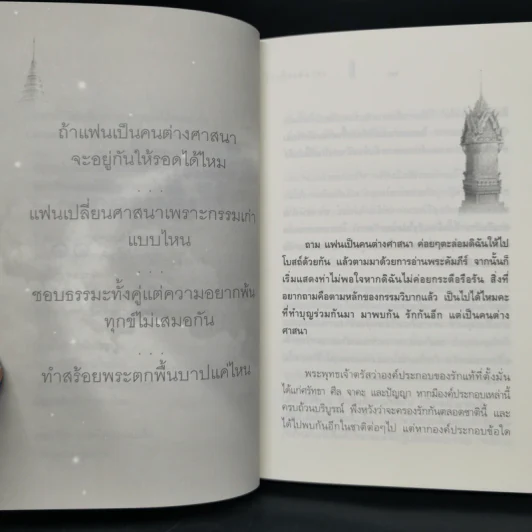 ถ้าแฟนเป็นคนต่างศาสนา
จะอยู่กันให้รอดได้ไหม
...
แฟนเปลี่ยนศาสนาเพราะกรรมเก่า
แบบไหน
...
ชอบธรรมะทั้งคู่แต่ความอยากพ้น
ทุกข์ไม่เสมอกัน
...
ทำสร้อยพระตกพื้นบาปแค่ไหน
ถาม แฟนเป็นคนต่างศาสนา ค่อยๆตะล่อมดิฉันให้ไป
โบสถ์ด้วยกัน แล้วตามมาด้วยการอ่านพระคัมภีร์ จากนั้นก็
เริ่มแสดงท่าไม่พอใจหากดิฉันไม่ค่อยกระตือรือร้น สิ่งที่
อยากถามคือตามหลักของกรรมวิบากแล้ว เป็นไปได้ไหมคะ
ที่ทำบุญร่วมกันมา มาพบกัน รักกันอีก แต่เป็นคนต่าง
ศาสนา
พระพุทธเจ้าตรัสว่าองค์ประกอบของรักแท้ที่ตั้งมั่น
ได้แก่ศรัทธา ศีล จาคะ และปัญญา หากมีองค์ประกอบเหล่านี้
ครบถ้วนบริบูรณ์ พึงหวังว่าจะครองรักกันตลอดชาตินี้ และ
ได้ไปพบกันอีกในชาติต่อๆไป แต่หากองค์ประกอบข้อใด